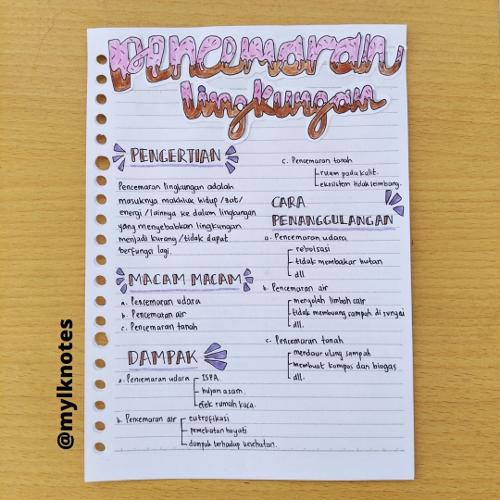 pencemaran
lingkungan
PENGERTIAN
Pencemaran lingkungan adalah
masuknya makhluk hidup/zat/
energi/lainnya ke dalam lingkungan
yang menyebabkan lingkungan
menjadi kurang/tidak dapat
berfungsi lagi.
MACAM MACAM
a. Pencemaran udara
b. Pencemaran air
c. Pencemaran tanah
DAMPAK
a. Pencemaran udara
ISPA.
hujan asam.
efek rumah kaca.
b. Pencemaran air
eutrofikasi
pemekatan hayati
dampak terhadap kesehatan.
c. Pencemaran tanah
ruam pada kulit.
ekosistem tidak seimbang.
CARA
PENANGGULANGAN
a. Pencemaran udara
reboisasi
tidak membakar hutan
dll
b. Pencemaran air
mengolah limbah cair
tidak membuang sampah di sungai
dll.
c. Pencemaran tanah
mendaur ulang sampah
membuat kompos dan biogas
dll.
@mylknotes